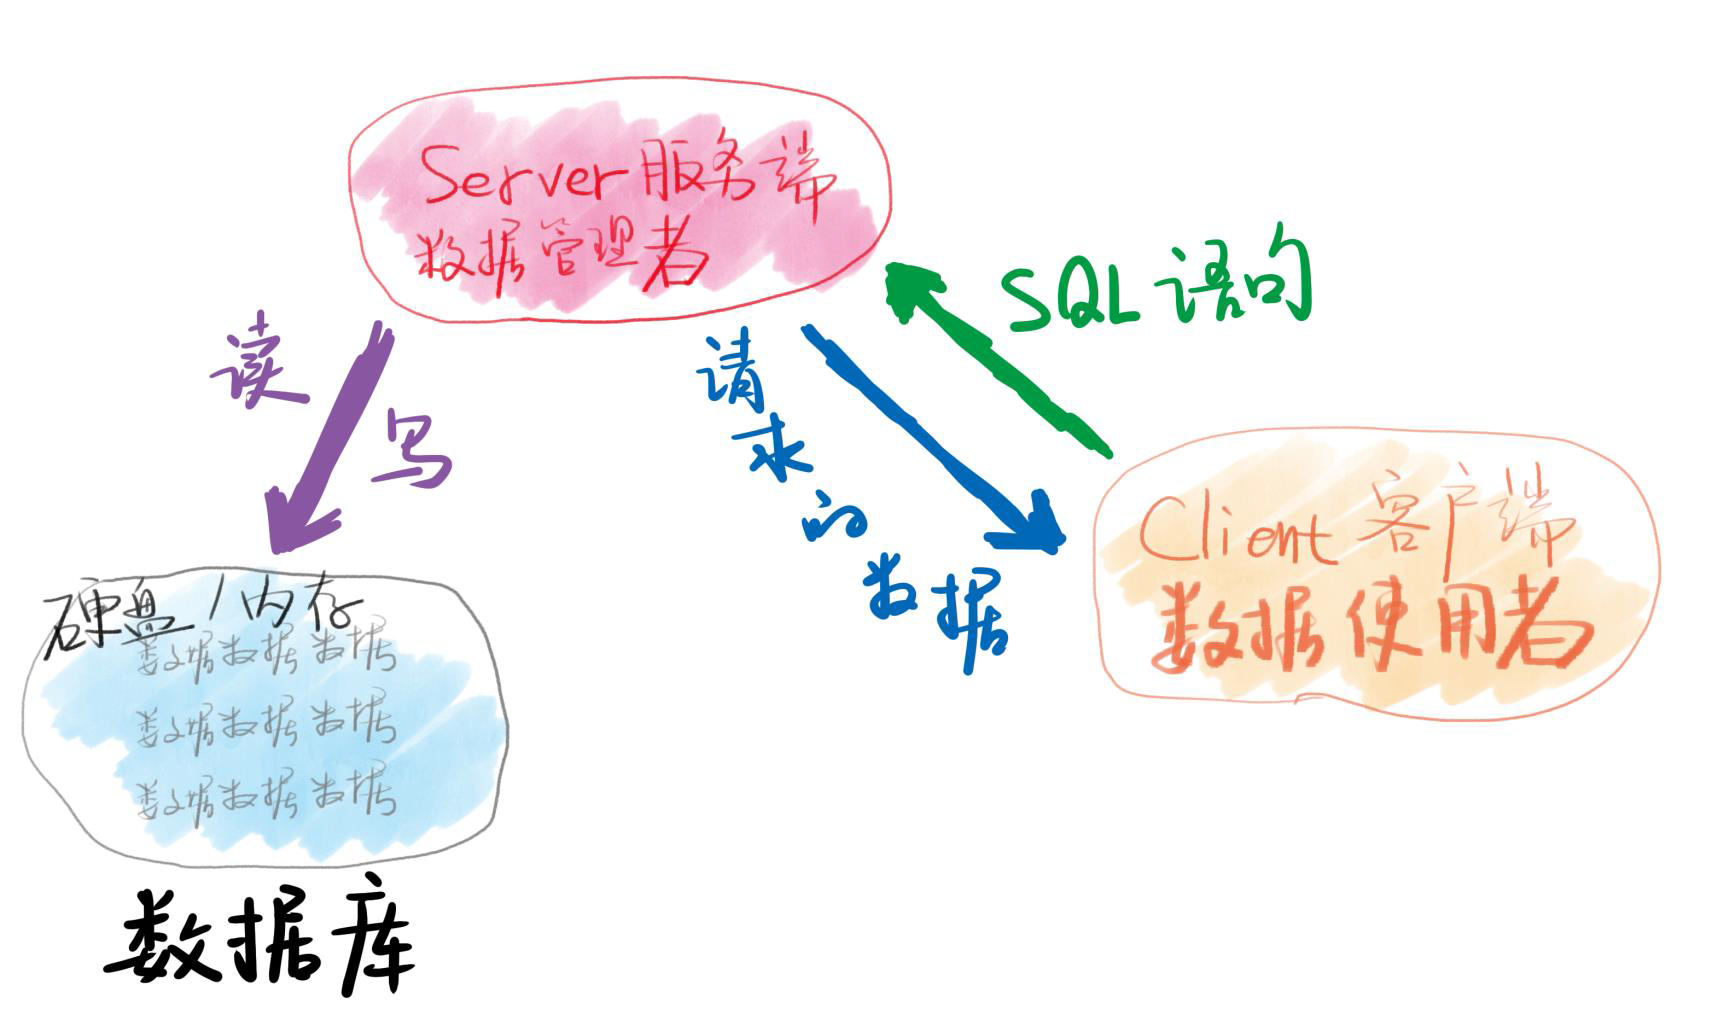 Server服务端
数据管理者
SQL语句
读
写
请求的数据
Client客户端
数据使用者
硬盘/内存
数据数据数据
数据数据数据
数据数据数据
数据库